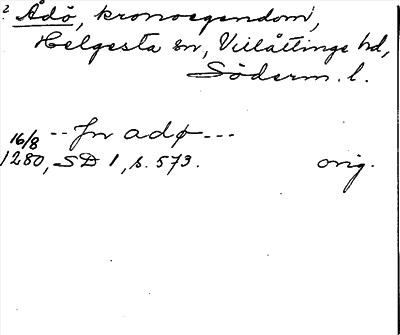 ? Ådö, kronoegendom,
Helgesta sn, Villåttinge hd,
Söderm. l.
-- jn adø ---
16/8
1280, SD 1, s. 573. orig.